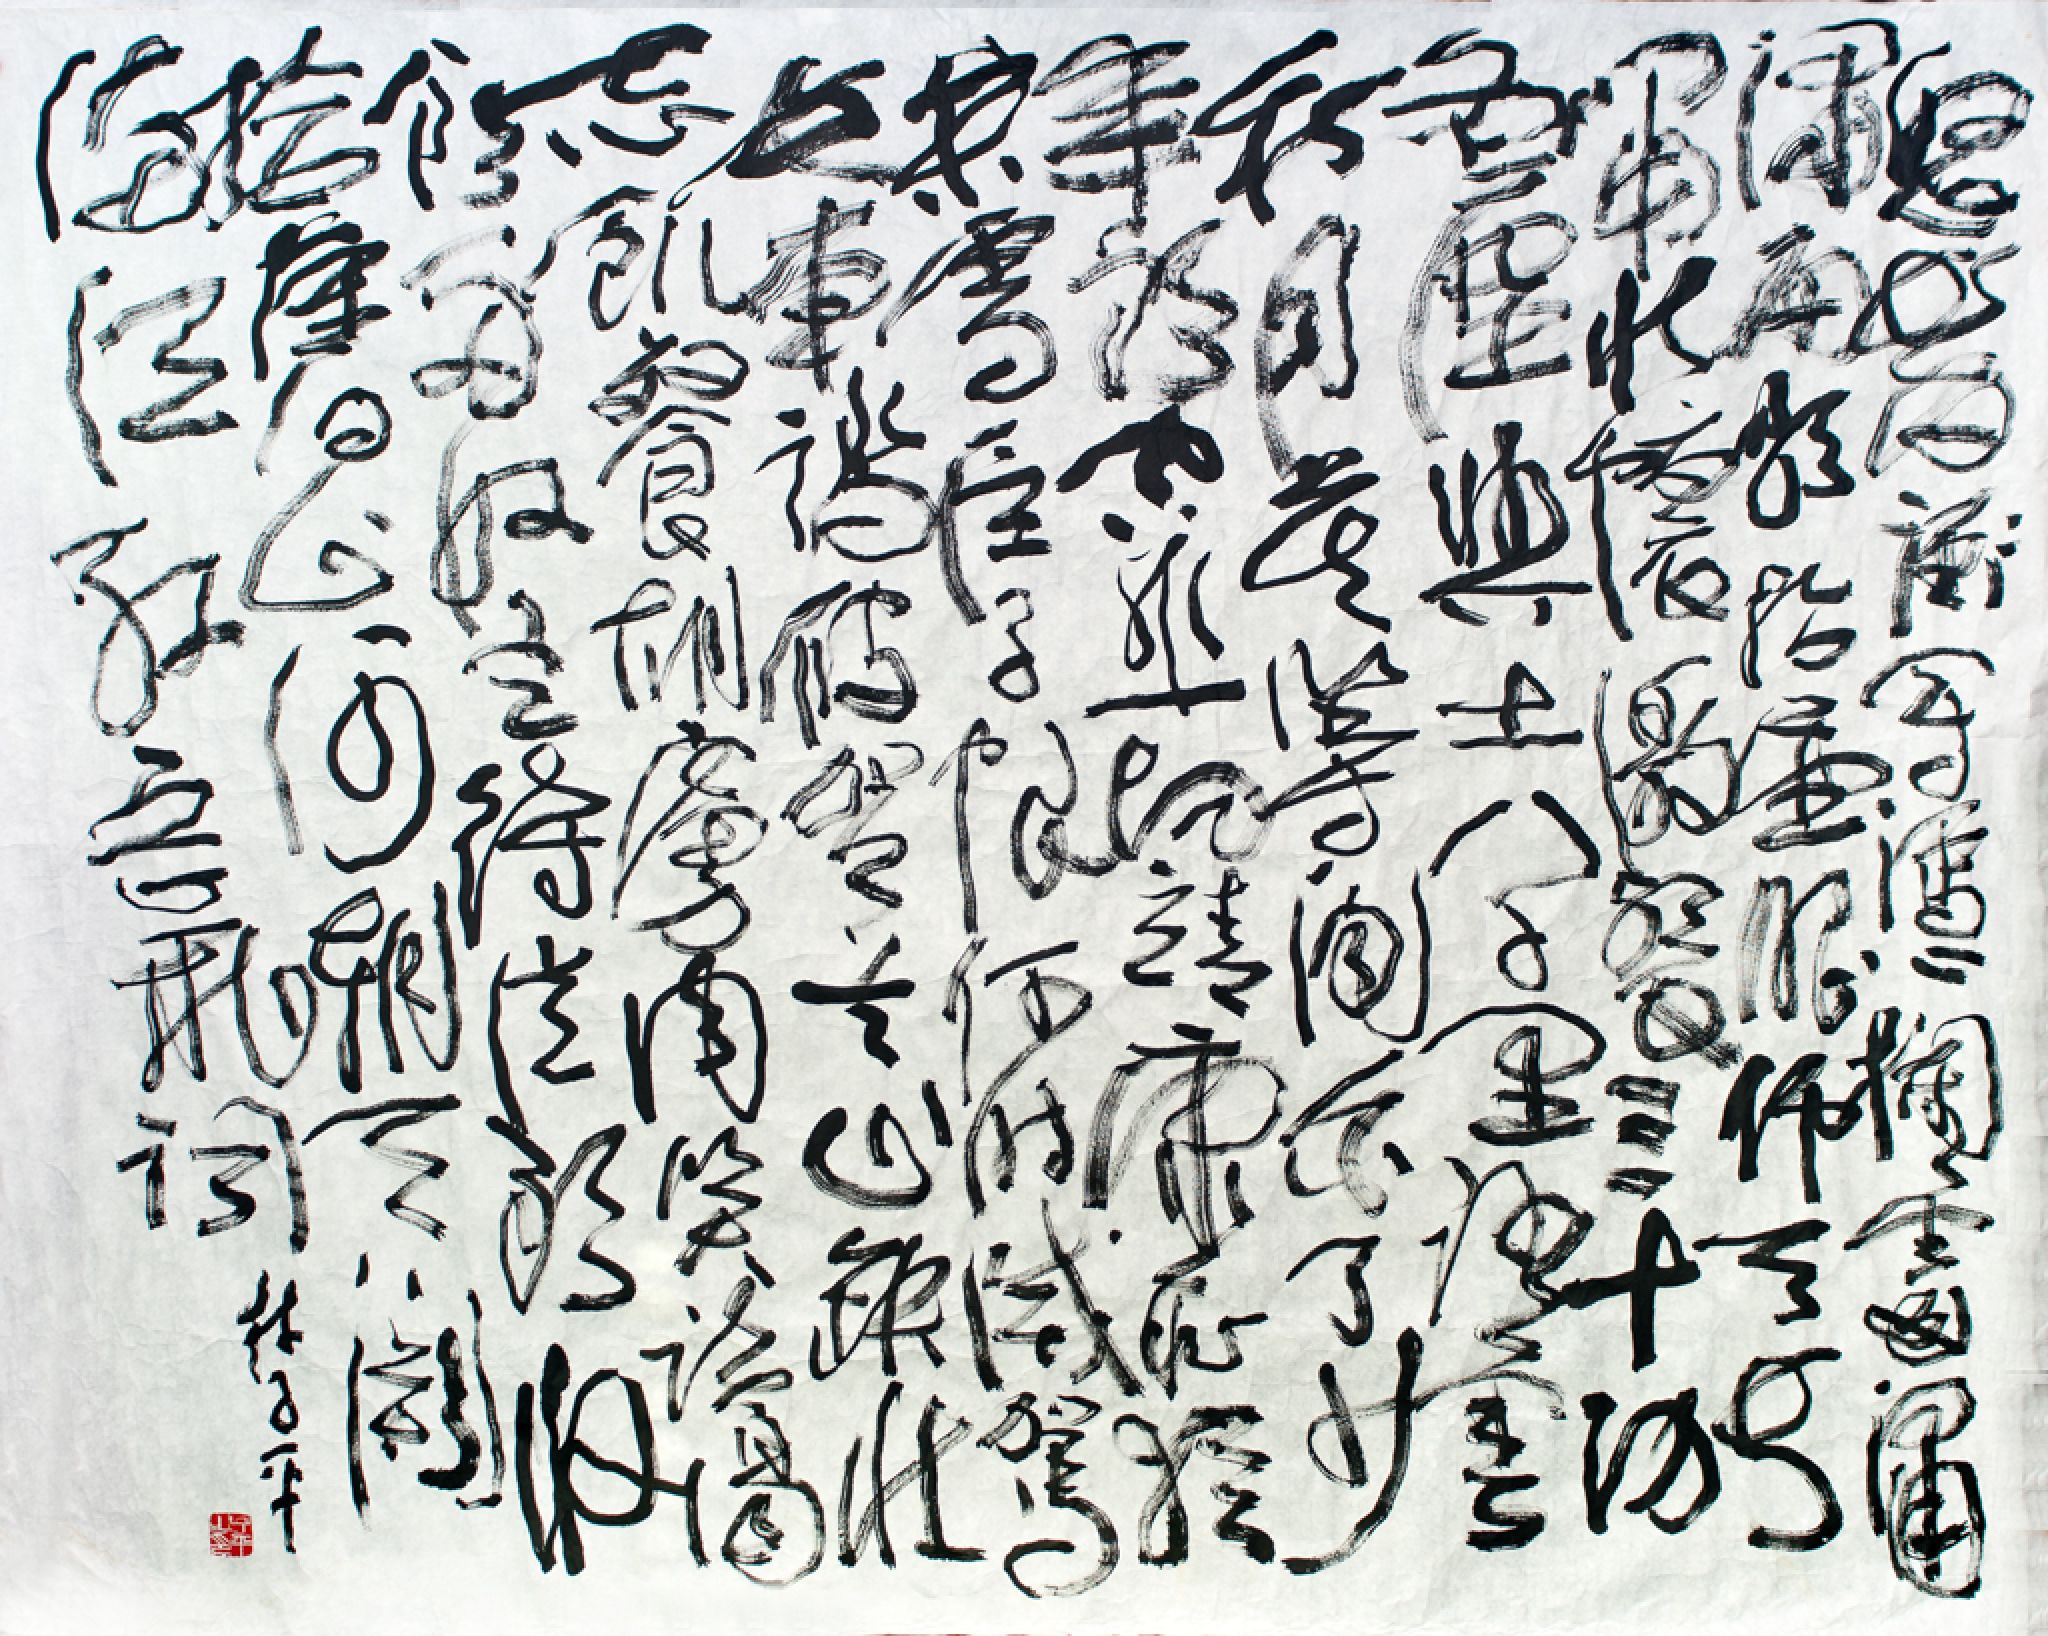 怒髮衝冠憑欄處瀟
瀟雨歇抬望眼仰天長
嘯壯懷激烈三十功
名塵與土八千里路雲
和月莫等閒白了少
年頭空悲切靖康恥猶
未雪臣子恨何時滅駕
長車踏破賀蘭山缺壯
志飢餐胡虜肉笑談渴
飲匈奴血待從頭收
拾舊山河朝天闕
滿江紅岳飛詞
子平